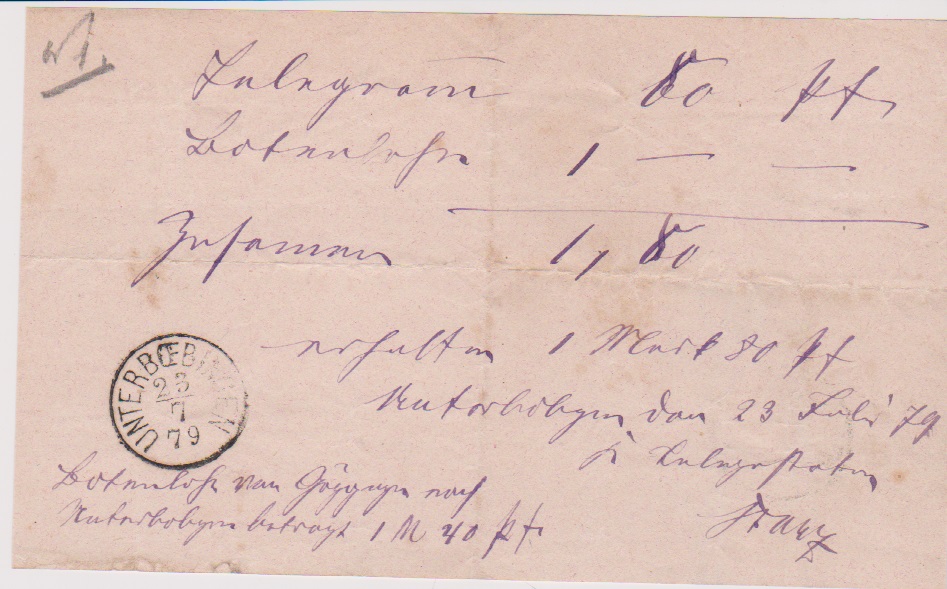 Telegramm 80 Pf
Botenlohn 1 — —
Zusamen 1, 80
erhalten 1 Mark 80 Pf
Unterbobgen den 23 Juli 79
Telegrafstation
UNTERBŒBINGEN
23/7
79
Botenlohn von Göggingen nach
Unterbobgen betragt 1 M 40 Pf.